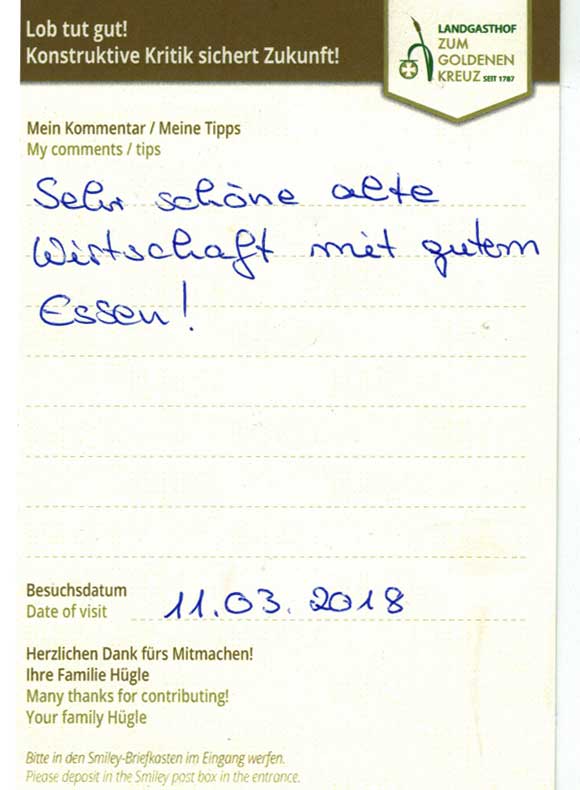 Lob tut gut!
Konstruktive Kritik sichert Zukunft!
LANDGASTHOF
ZUM
GOLDENEN
KREUZ SEIT 1787
Mein Kommentar / Meine Tipps
My comments / tips
Sehr schöne alte
Wirtschaft mit gutem
Essen!
Besuchsdatum
Date of visit
11.03.2018
Herzlichen Dank fürs Mitmachen!
Ihre Familie Hügle
Many thanks for contributing!
Your family Hügle
Bitte in den Smiley-Briefkasten im Eingang werfen.
Please deposit in the Smiley post box in the entrance.